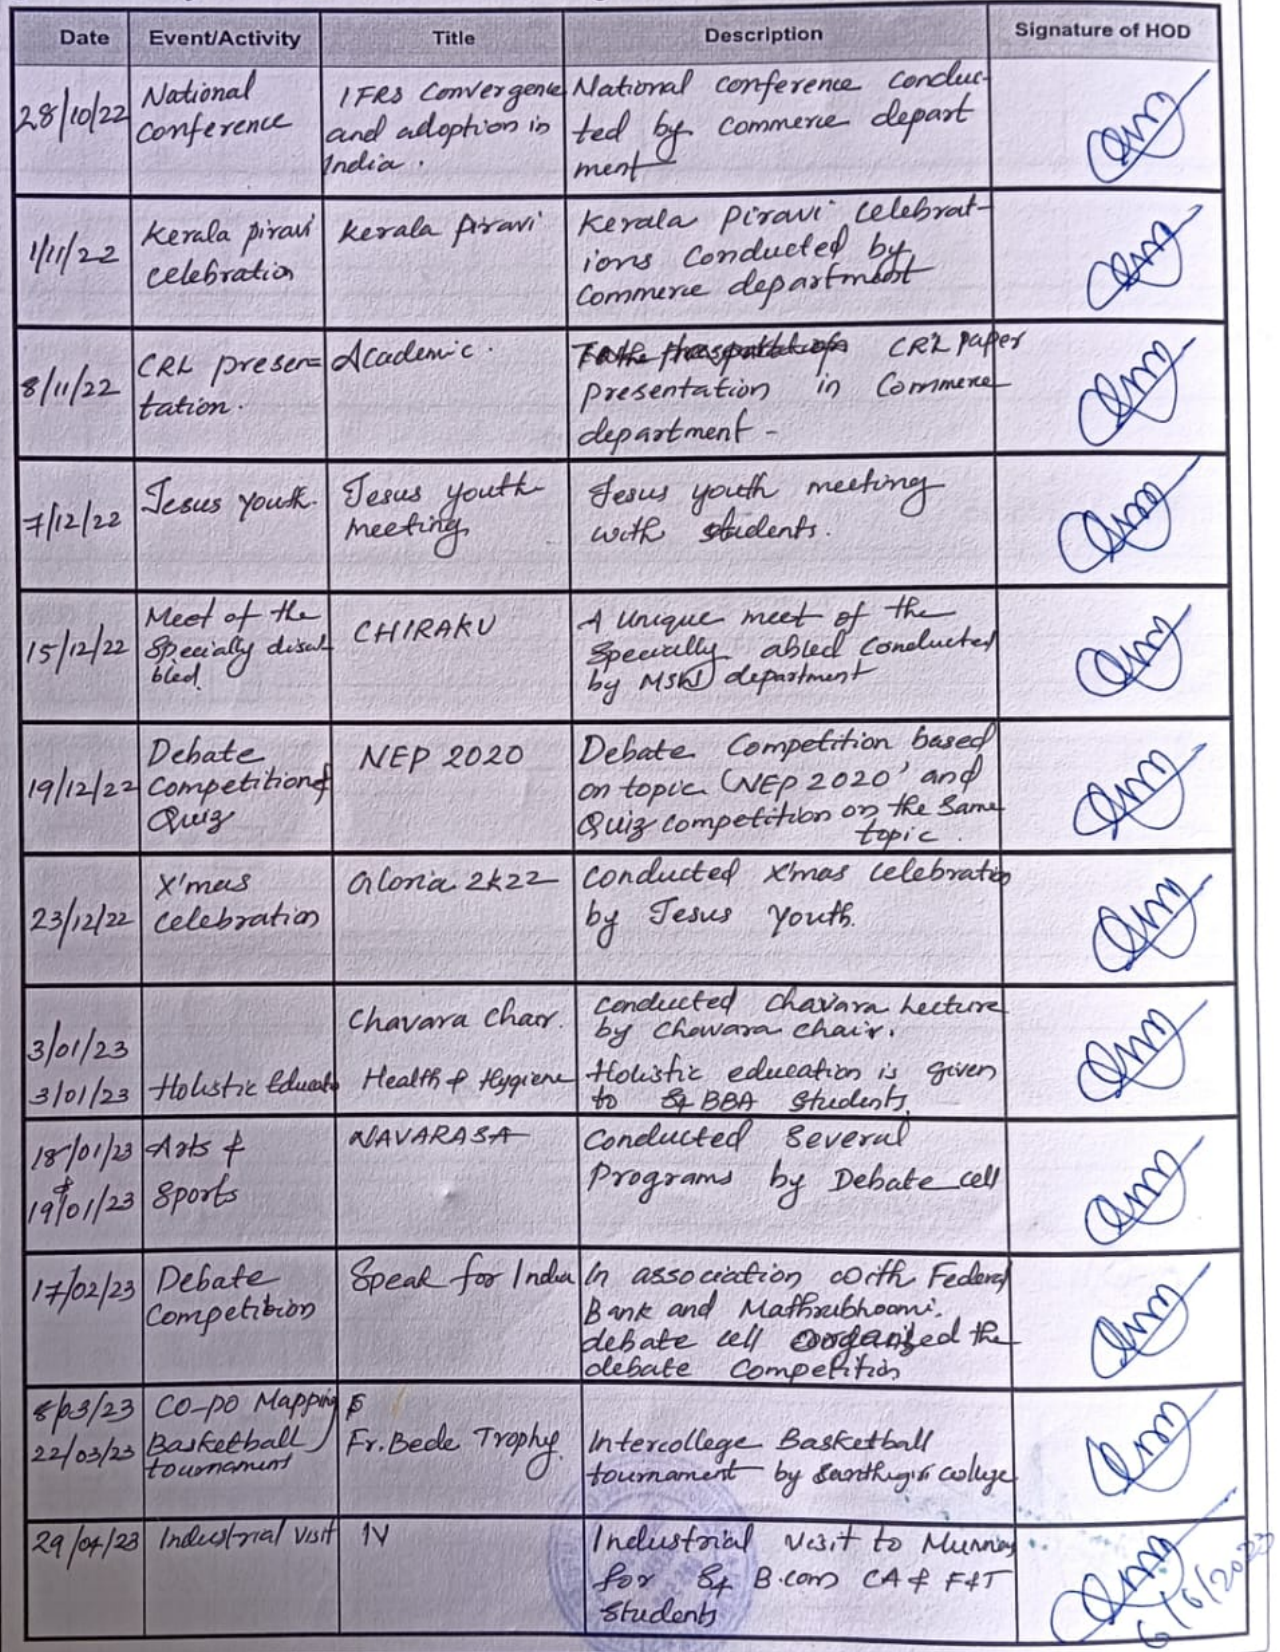 Date Event/Activity Title Description Signature of HOD
28/10/22
National
conference
IFRS Convergence
and adoption in
India.
National conference conduc-
ted by commerce depart
ment
1/11/22
Kerala piravi
celebration
Kerala Piravi
Kerala Piravi celebrat-
ions conducted by
Commerce department
8/11/22
CRL presen=
tation.
Academic.
CRL paper
presentation in Commerce
department -
7/12/22
Jesus Youth.
Jesus youth
meeting
Jesus youth meeting
with students.
15/12/22
Meet of the
Specially disa
bled.
CHIRAKU
A Unique meet of the
Specially abled conducted
by MSW department
19/12/22
Debate
Competition &
Quiz
NEP 2020
Debate Competition based
on topic 'NEP 2020' and
Quiz competition on the Same
topic.
23/12/22
X'mas
celebration
Gloria 2k22
Conducted X'mas celebration
by Jesus Youth.
3/01/23
Chavara Chair.
Conducted Chavara Lecture
by Chavara chair.
3/01/23
Holistic Educat
Health & Hygiene
Holistic education is given
to S4 BBA Students.
18/01/23
&
19/01/23
Arts &
Sports
NAVARASA
Conducted Several
Programs by Debate cell
17/02/23
Debate
Competition
Speak for India
In association with Federal
Bank and Mathrubhoomi.
debate cell organised the
debate Competition
8/03/23
CO-PO Mapping
22/03/23
Basketball
tournament
Fr. Bede Trophy.
Intercollege Basketball
tournament by Santhigiri college
29/04/23
Industrial Visit
IV
Industrial Visit to Munnar
for S4 B.com CA & F&T
Students
6/6/2023